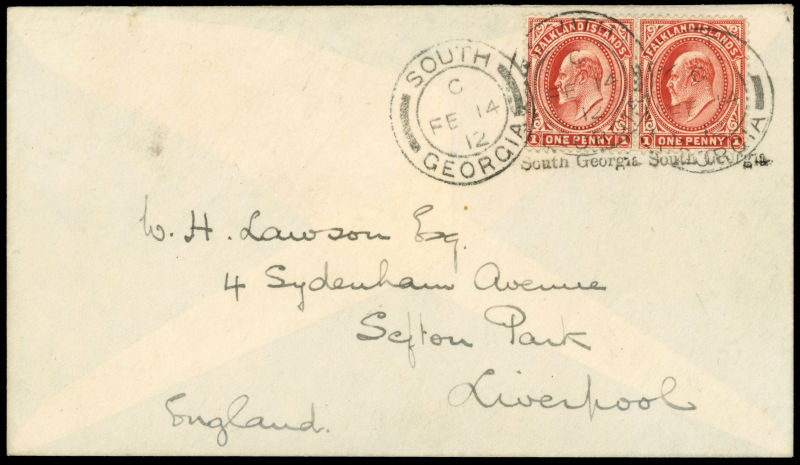 SOUTH
C
FE 14
12
GEORGIA
FALKLAND ISLANDS
1 ONE PENNY 1
FALKLAND ISLANDS
1 ONE PENNY 1
South Georgia South Georgia.
W. H. Lawson Esq.
4 Sydenham Avenue
Sefton Park
Liverpool
England.